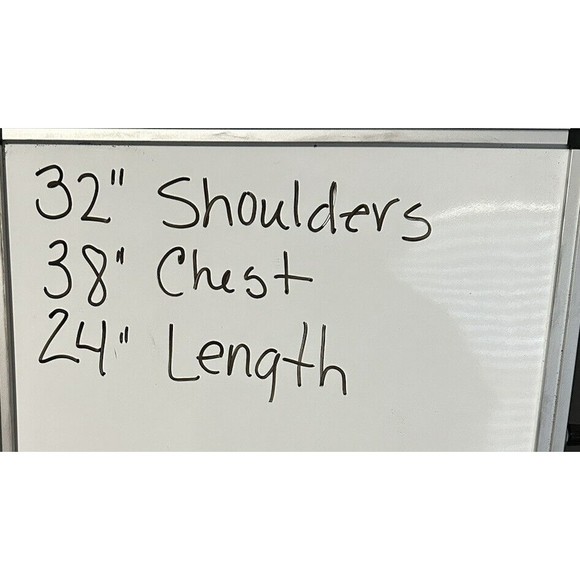 32" Shoulders
38" Chest
24" Length